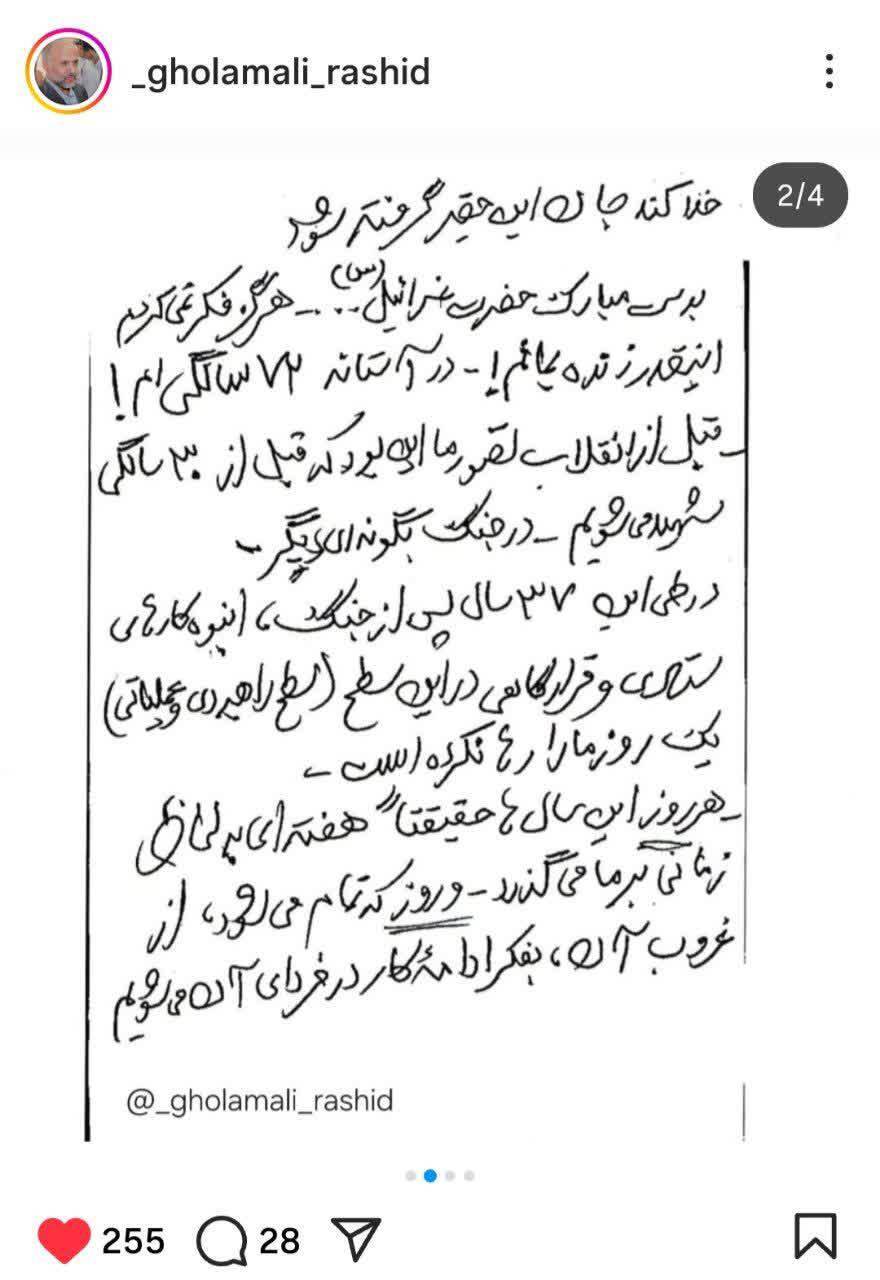 _gholamali_rashid
2/4
خدا کند جان این حقیر گرفته شود
بدست مبارک حضرت عزرائیل (س)... - هرگز فکر نمی‌کردیم
اینقدر زنده بمانم! - در آستانه ۷۲ سالگی ام!
- قبل از انقلاب تصور ما این بود که قبل از ۳۰ سالگی
شهید می‌شویم - در جنگ بگونه‌ای دیگر -
در طی این ۳۷ سال پس از جنگ، انبوه کارهای
ستادی و قرارگاهی در این سطح (سطح راهبردی و عملیاتی)
یک روز ما را رها نکرده است -
- هر روز این سال ها حقیقتاً هفته ای به لحاظ
زمانی بر ما می‌گذرد - و روز که تمام می‌شود، از
غروب آن، بفکر ادامهٔ کار در فردای آن می‌شویم
@_gholamali_rashid
255
28